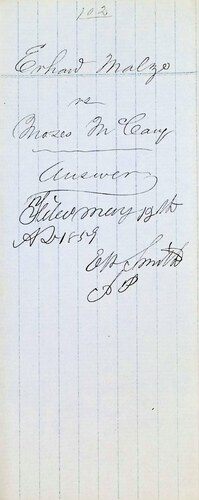 102
Erhard Malzo
vs
Moses McCany
Answer
Filed May 13th
AD 1859
EH Smith
JP